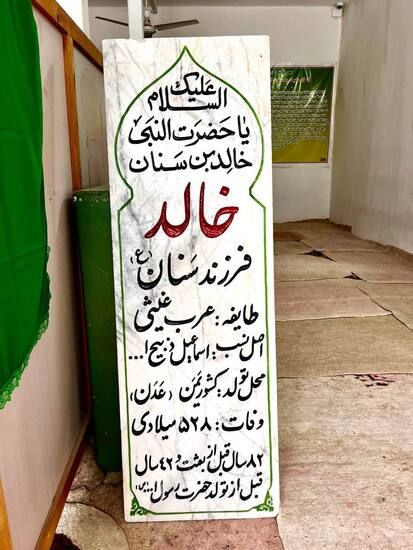 السلام علیک
یا حضرت النبی
خالد بن سنان
خالد
فرزند سنان (ع)
طایفه: عرب غیثی
اصل نسب: اسماعیل ذبیح ا...
محل تولد: کشور یمن (عدن)
وفات: ۵۲۸ میلادی
۸۲ سال قبل از بعثت و ۴۲ سال
قبل از تولد حضرت رسول ا... (ص)